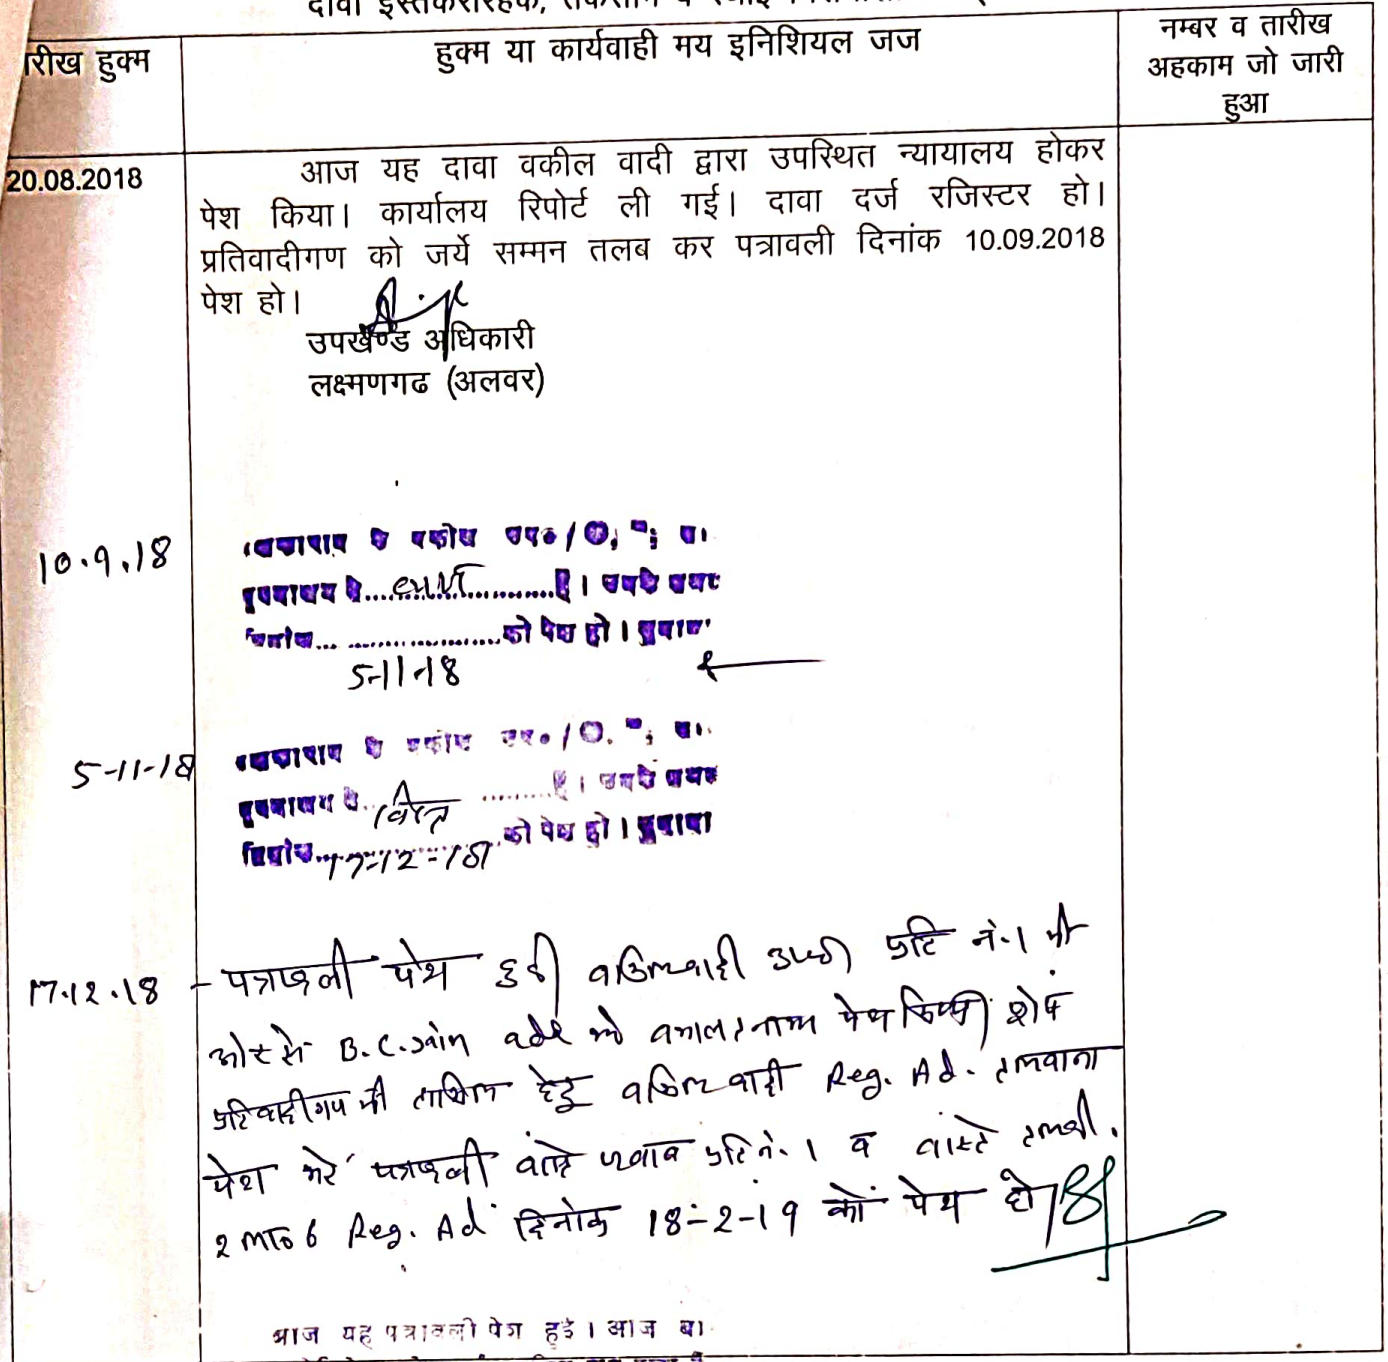 दावा
रीख हुक्म
हुक्म या कार्यवाही मय इनिशियल जज
नम्बर व तारीख
अहकाम जो जारी
हुआ
20.08.2018
आज यह दावा वकील वादी द्वारा उपस्थित न्यायालय होकर
पेश किया। कार्यालय रिपोर्ट ली गई। दावा दर्ज रजिस्टर हो।
प्रतिवादीगण को जर्ये सम्मन तलब कर पत्रावली दिनांक 10.09.2018
पेश हो।
उपखण्ड अधिकारी
लक्ष्मणगढ (अलवर)
10.9.18
को पेश हो।
5-11-18
5-11-18
को पेश हो।
17-12-18
17.12.18
पत्रावली पेश हुई वकिल वादी उप० प्रति नं.1 की
ओर से B.C. Jain adv ने वकालतनामा पेश किया शेष
प्रतिवादीगण की तामिल हेतु वकिल वादी Reg. Ad. तलवाना
पेश करें पत्रावली वास्ते जवाब प्रति नं. 1 व वास्ते तलबी
2 ता 6 Reg. Ad दिनांक 18-2-19 को पेश हो।
आज यह पत्रावली पेश हुई। आज